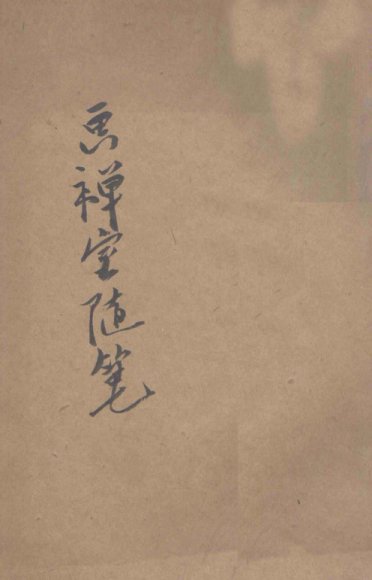 画禅室随笔